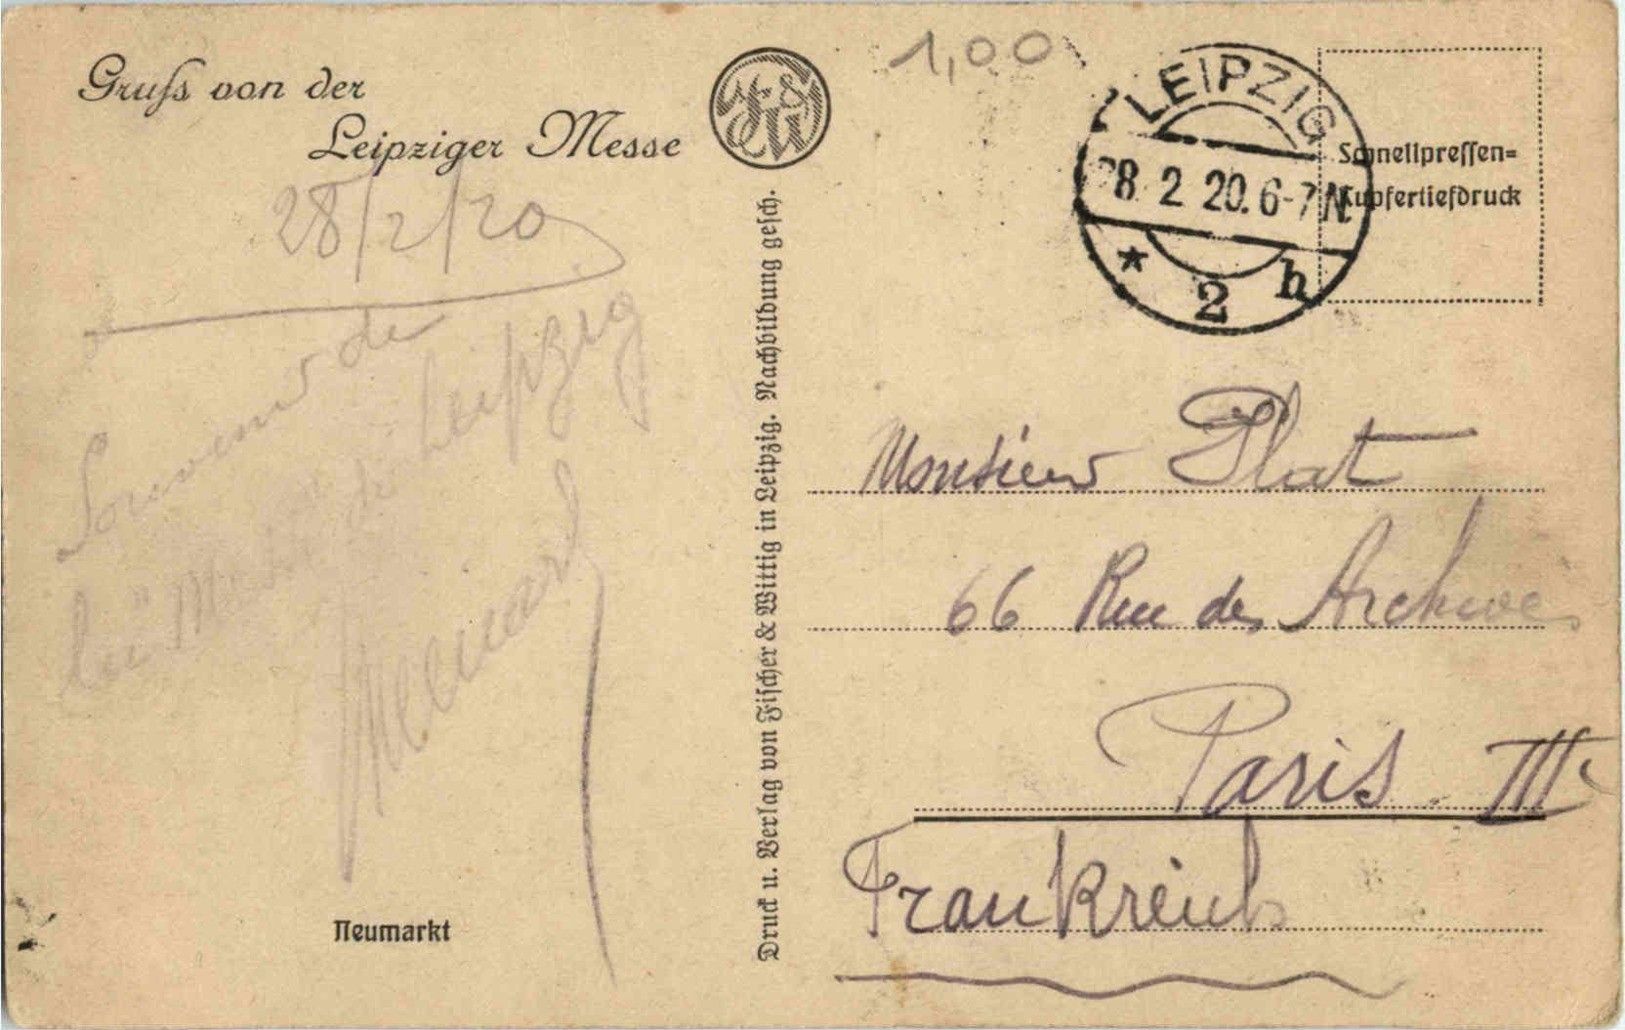 Gruß von der
Leipziger Messe
28/2/20
Souvenir de
la "Messe" de Leipzig
Neumarkt
Druck u. Verlag von Fischer & Wittig in Leipzig. Nachbildung gesch.
F&W
1,00
LEIPZIG
28 2 20. 6-7 N.
* 2 h
Schnellpressen=
Kupfertiefdruck
Monsieur Plat
66 Rue des Archives
Paris IIIe
Frankreich